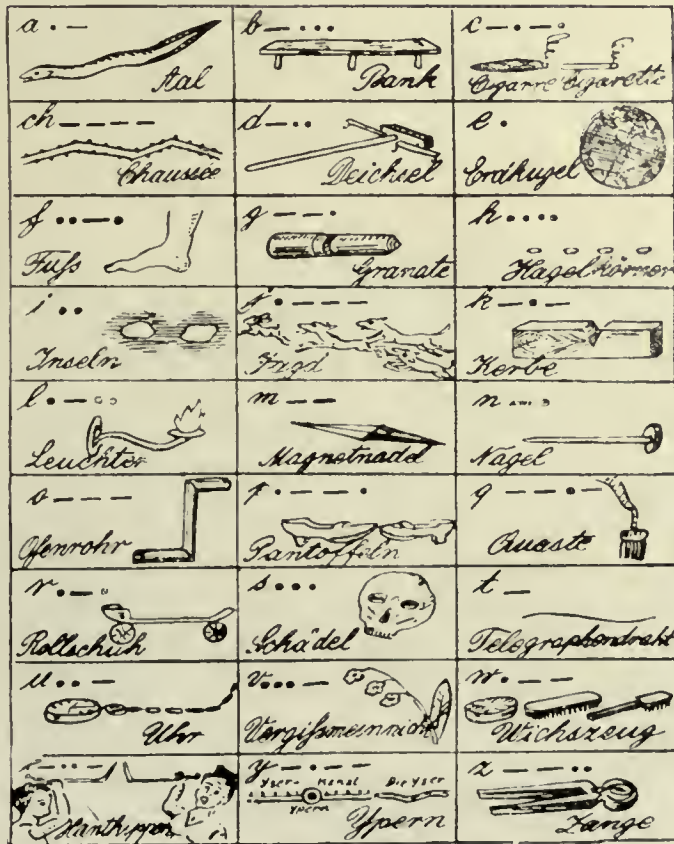 a · —
Aal
b — · · ·
Bank
c — · — ·
Cigarre Cigarette
ch — — — —
Chaussée
d — · ·
Deichsel
e ·
Erdkugel
f · · — ·
Fuſs
g — — ·
Granate
h · · · ·
Hagelkörner
i · ·
Inseln
j · — — —
Jagd
k — · —
Kerbe
l · — · ·
Leuchter
m — —
Magnetnadel
n — ·
Nagel
o — — —
Ofenrohr
p · — — ·
Pantoffeln
q — — · —
Quaste
r · — ·
Rollschuh
s · · ·
Schädel
t —
Telegraphendraht
u · · —
Uhr
v · · · —
Vergiſsmeinnicht
w · — —
Wichszeug
Xanthippen
y — · — —
Yser Kanal Die Yser
Ypern
Ypern
z — — · ·
Zange